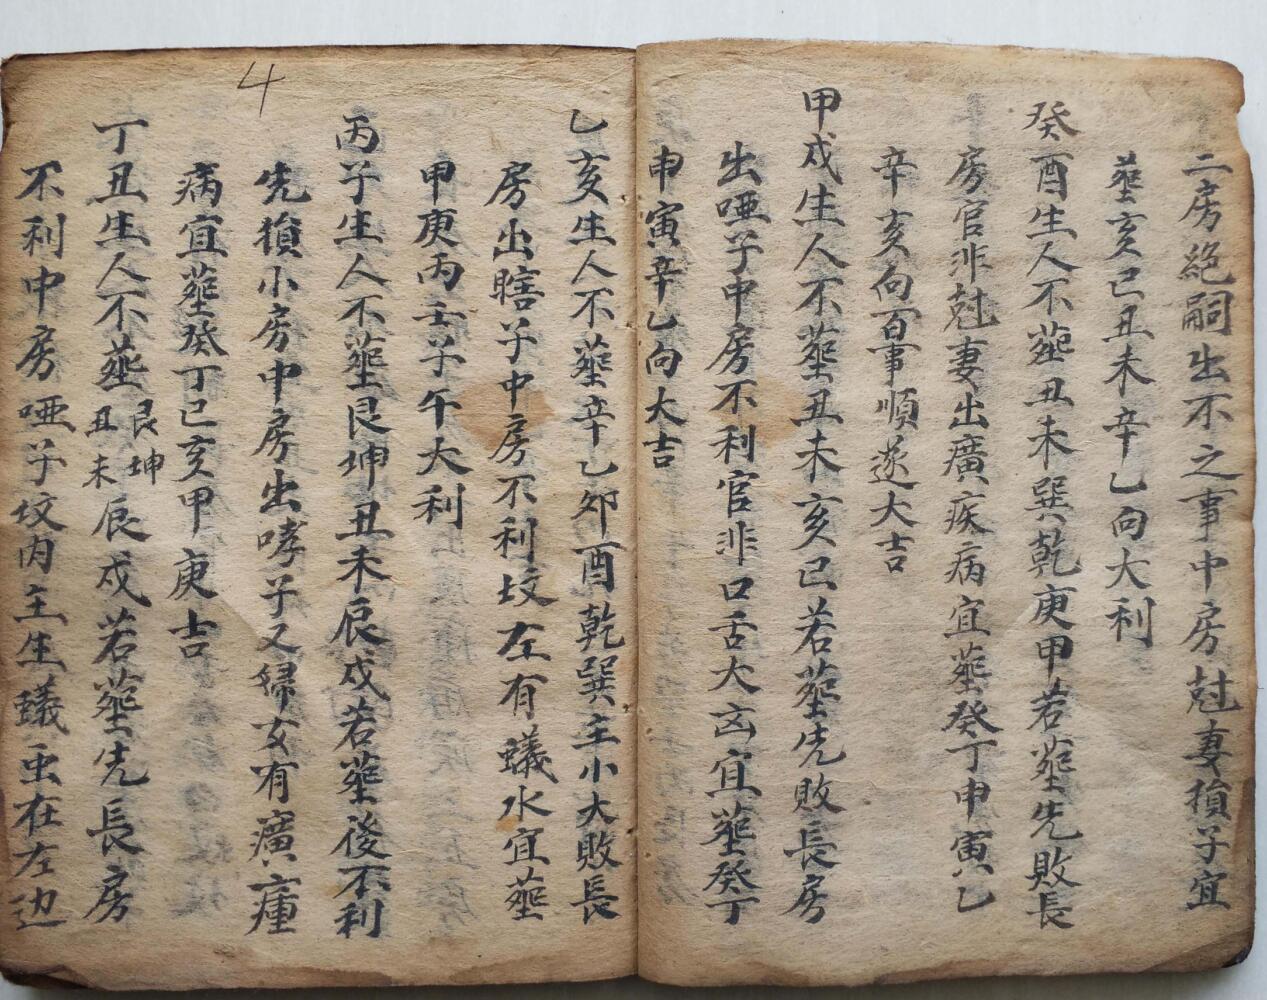 二房絕嗣出不之事中房尅妻損子宜
塟亥巳丑未辛乙向大利
癸酉生人不塟丑未巽乾庚甲若塟先敗長
房官非尅妻出癀疾病宜塟癸丁申寅乙
辛亥向百事順遂大吉
甲戌生人不塟丑未亥巳若塟先敗長房
出啞子中房不利官非口舌大凶宜塟癸丁
申寅辛乙向大吉
乙亥生人不塟辛乙卯酉乾巽主小大敗長
房出瞎子中房不利坟左有蟻水宜塟
甲庚丙壬子午大利
丙子生人不塟艮坤丑未辰戌若塟後不利
先損小房中房出哮子又婦女有癀瘇
病宜塟癸丁巳亥甲庚吉
丁丑生人不塟艮坤丑未辰戌若塟先長房
不利中房啞子坟内主生蟻虫在左边
4